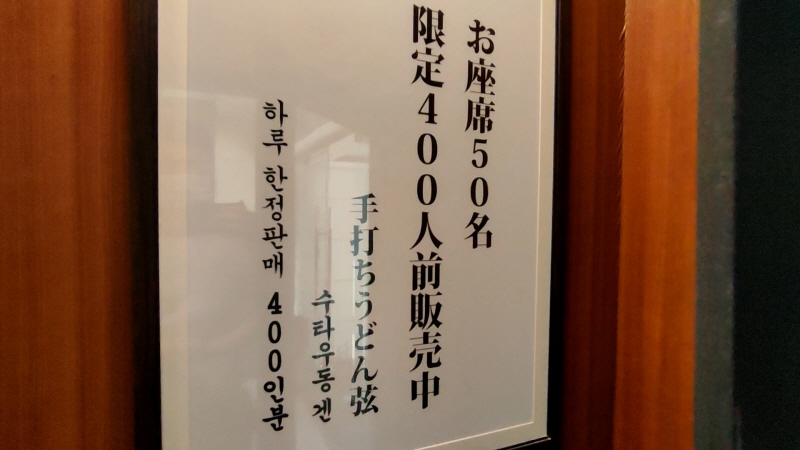 お座席50名
限定400人前販売中
手打ちうどん弦
수타우동 겐
하루 한정판매 400인분